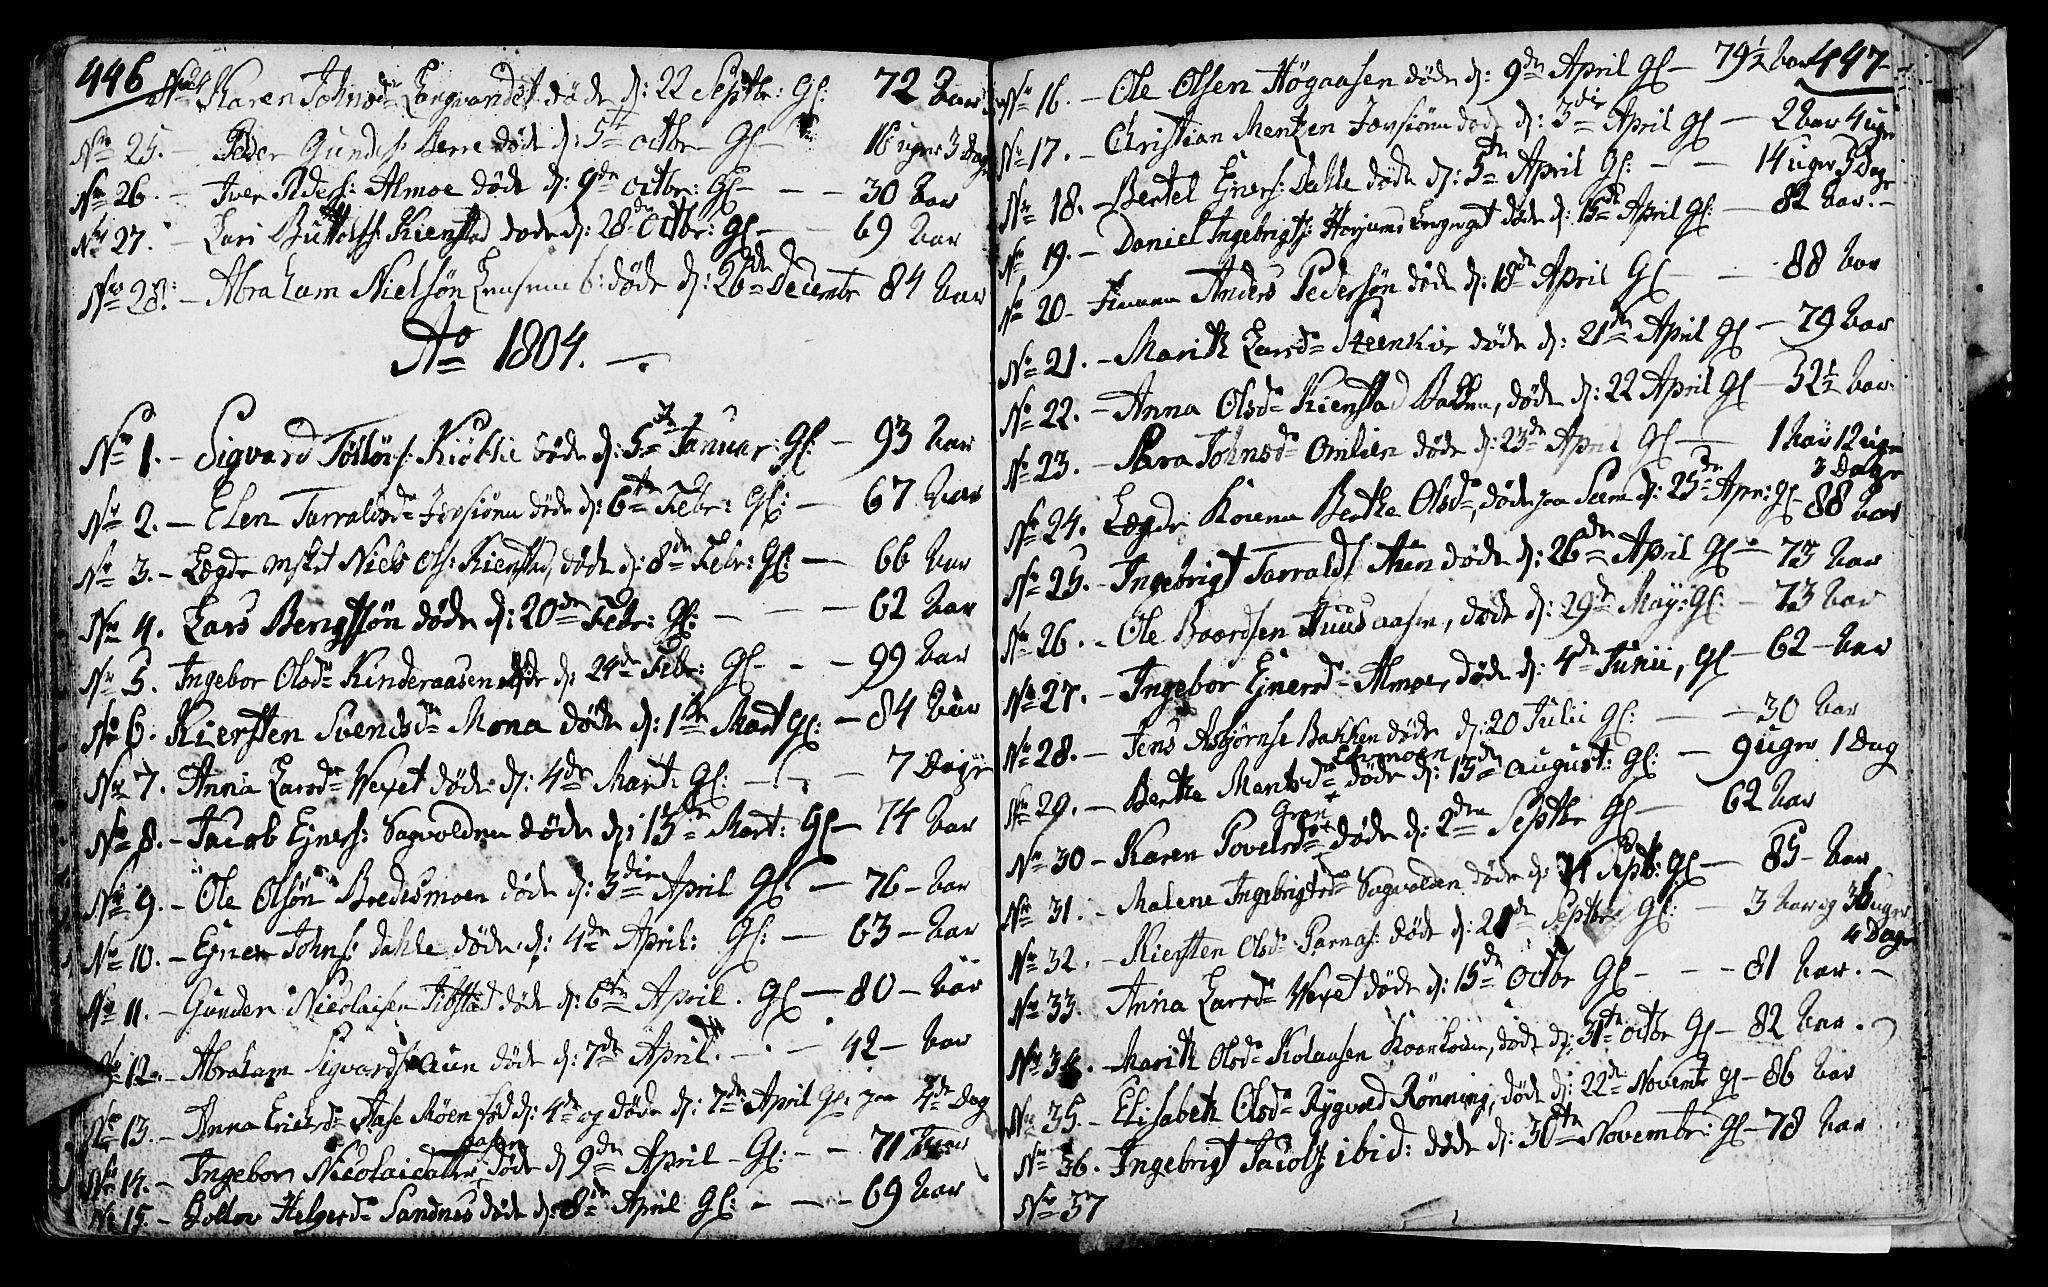 446
No 24 Karen Johnsdr døde d: 22 Septbr: Gl: 72 Aar
No 25. - Peder Gunders: Berre døde d: 5t octbr Gl - 16 uger 3 Dage
No 26. - Iver Peders: Almoe døde d: 9de octbr: Gl - - - 30 Aar
No 27. - Kienstad døde d: 28de Octbr: gl - - 69 Aar
No 28. - Abraham Nielsøn døde d: 26de Decembr 84 Aar
Ao 1804.
No 1. - Sigvard døde d: 5te Januar: gl: - 93 Aar
No 2. - Elen Tarraldsdr døde d: 6te Febr: Gl: - 67 Aar
No 3. - Lægde Niels Ols: Kienstad, døde d: 8de Febr: Gl: - 66 Aar
No 4. Lars Bengtsøn døde d: 20de Febr: Gl: - - - 62 Aar
No 5. Ingebor Olsdr Kinderaasen døde d: 24de Febr: Gl - - - 99 Aar
No 6. Kiersten Svendsdr Mona døde d: 1te Mart gl: - 84 Aar
No 7. Anna Larsdr Vexet døde d: 4de Mart: gl: - - - 7 Dage
No 8. - Jacob Ejners: Sagvolden døde d: 13de Mart: Gl - 74 Aar
No 9. - Ole Olsøn Bredesmoen døde d: 3die April Gl: - 76 - Aar
No 10. - Ejner Johns: Dahle døde d: 4de April: Gl: - 63 - Aar
No 11. - Gunder Nicolaisen Tibstad døde d: 6te April. Gl - 80 - Aar
No 12. - Abraham Sigvards: Aun døde d: 7de April. - - - 42 - Aar
No 13. - Anna Ericksdr Aase Møen fød d: 4de og døde d: 7de April Gl: paa 4de Dag
No 14. - Ingebor Nicolaidatter Aasen, døde d: 9de April - Gl: - - 71 Aar
No 15. - Helgesdr Sandnes døde d: 8de April Gl: - - - 69 Aar
447
No 16. - Ole Olsen Högaasen døde d: 9de April Gl - 79½ Aar
No 17. - Christian Mentzen døde d: 3die April gl - 2 Aar 4 uger
No 18. - Bertel Ejners: Dahle døde d: 5te April Gl: - - 14 uger 3 Dage
No 19. - Daniel Ingebrigts: døde d: 15de April gl: - 82 Aar. -
No 20 - Anders Pedersøn døde d: 18de April Gl - - 88 Aar
No 21. - Marith Larsdr Steenkier døde d: 21de April gl - 79 Aar
No 22. - Anna Olsdr Kienstad Bakken, døde d: 22 April gl - 32½ Aar
No 23. - Sara Johnsdr Omlien døde d: 23de April Gl - 1 Aar 12 uger
3 Dage
No 24. Lægde Konen Berthe Olsdr, døde paa Seem d: 25de Apr: gl - 88 Aar
No 25. - Ingebrigt Tarralds: Aun døde d: 26de April Gl - 73 Aar
No 26. - Ole Baardsen Huusaasen, døde d: 29de May: gl: - 73 Aar
No 27. - Ingebor Ejnersdr Almoe, døde d: 4de Junii, gl - 62 - Aar
No 28. - Jens Asbjørnse Bakken døde d: 20 Julii gl: - - 30 Aar
No 29. - Berthe Mentsdr døde d: 13de august: Gl: - 9 uger 1 Dag
No 30 - Karen Povelsdr Gran døde d: 2den Septbr Gl - 62 Aar
No 31. - Malene Ingebrigtsdr Sagvolden døde d: Septb: gl - 85 - Aar
No 32. - Kiersten Olsdr Parnas: døde d: 21de Septbr Gl: - 3 Aar og 36 uger
4 Dage
No 33. Anna Larsdr Vexet døde d: 15de Octbr Gl - - - 81 Aar. -
No 34. Marith Olsdr Kolaasen døde d: 31te octbr Gl - 82 Aar.
No 35. - Elisabeth Olsdr Rygved Rønning, døde d: 22de Novembr gl - 86 Aar
No 36. Ingebrigt Jacobs: ibid: døde d: 30te Novembr: gl - 78 Aar
No 37